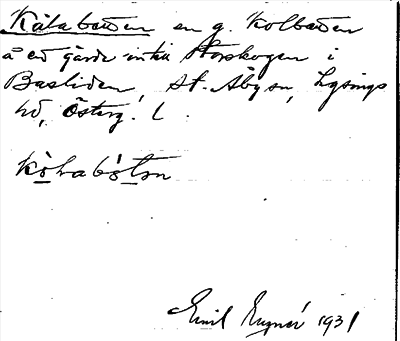 Kålabotten en g. Kolbotten
å en gärde intill Storskogen i
Basliden, St. Åby sn, Lysings
hd, Österg. l.
kòlabòtən
Emil Engnér 1931